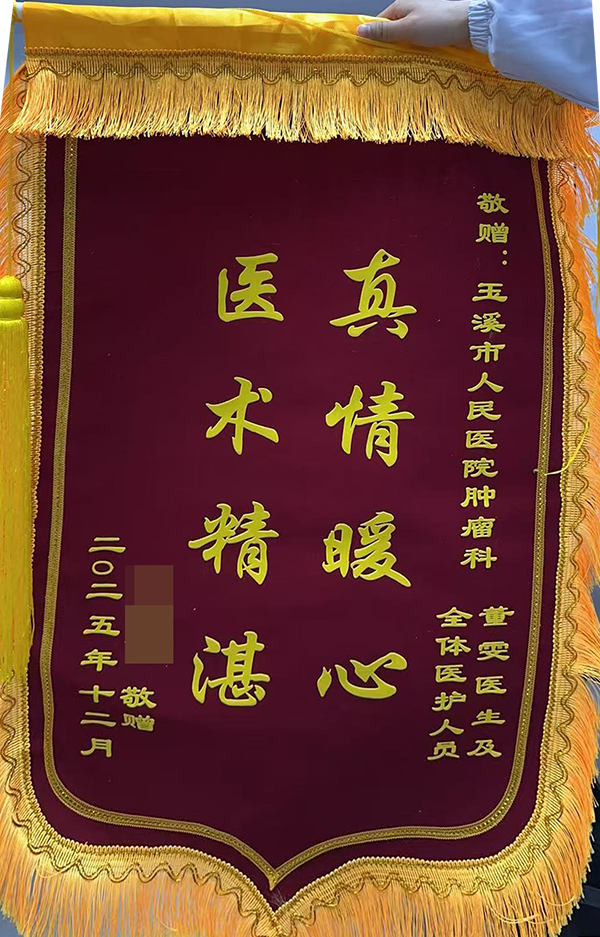 敬赠：玉溪市人民医院肿瘤科
董雯医生及
全体医护人员
真情暖心
医术精湛
敬赠
二〇二五年十二月